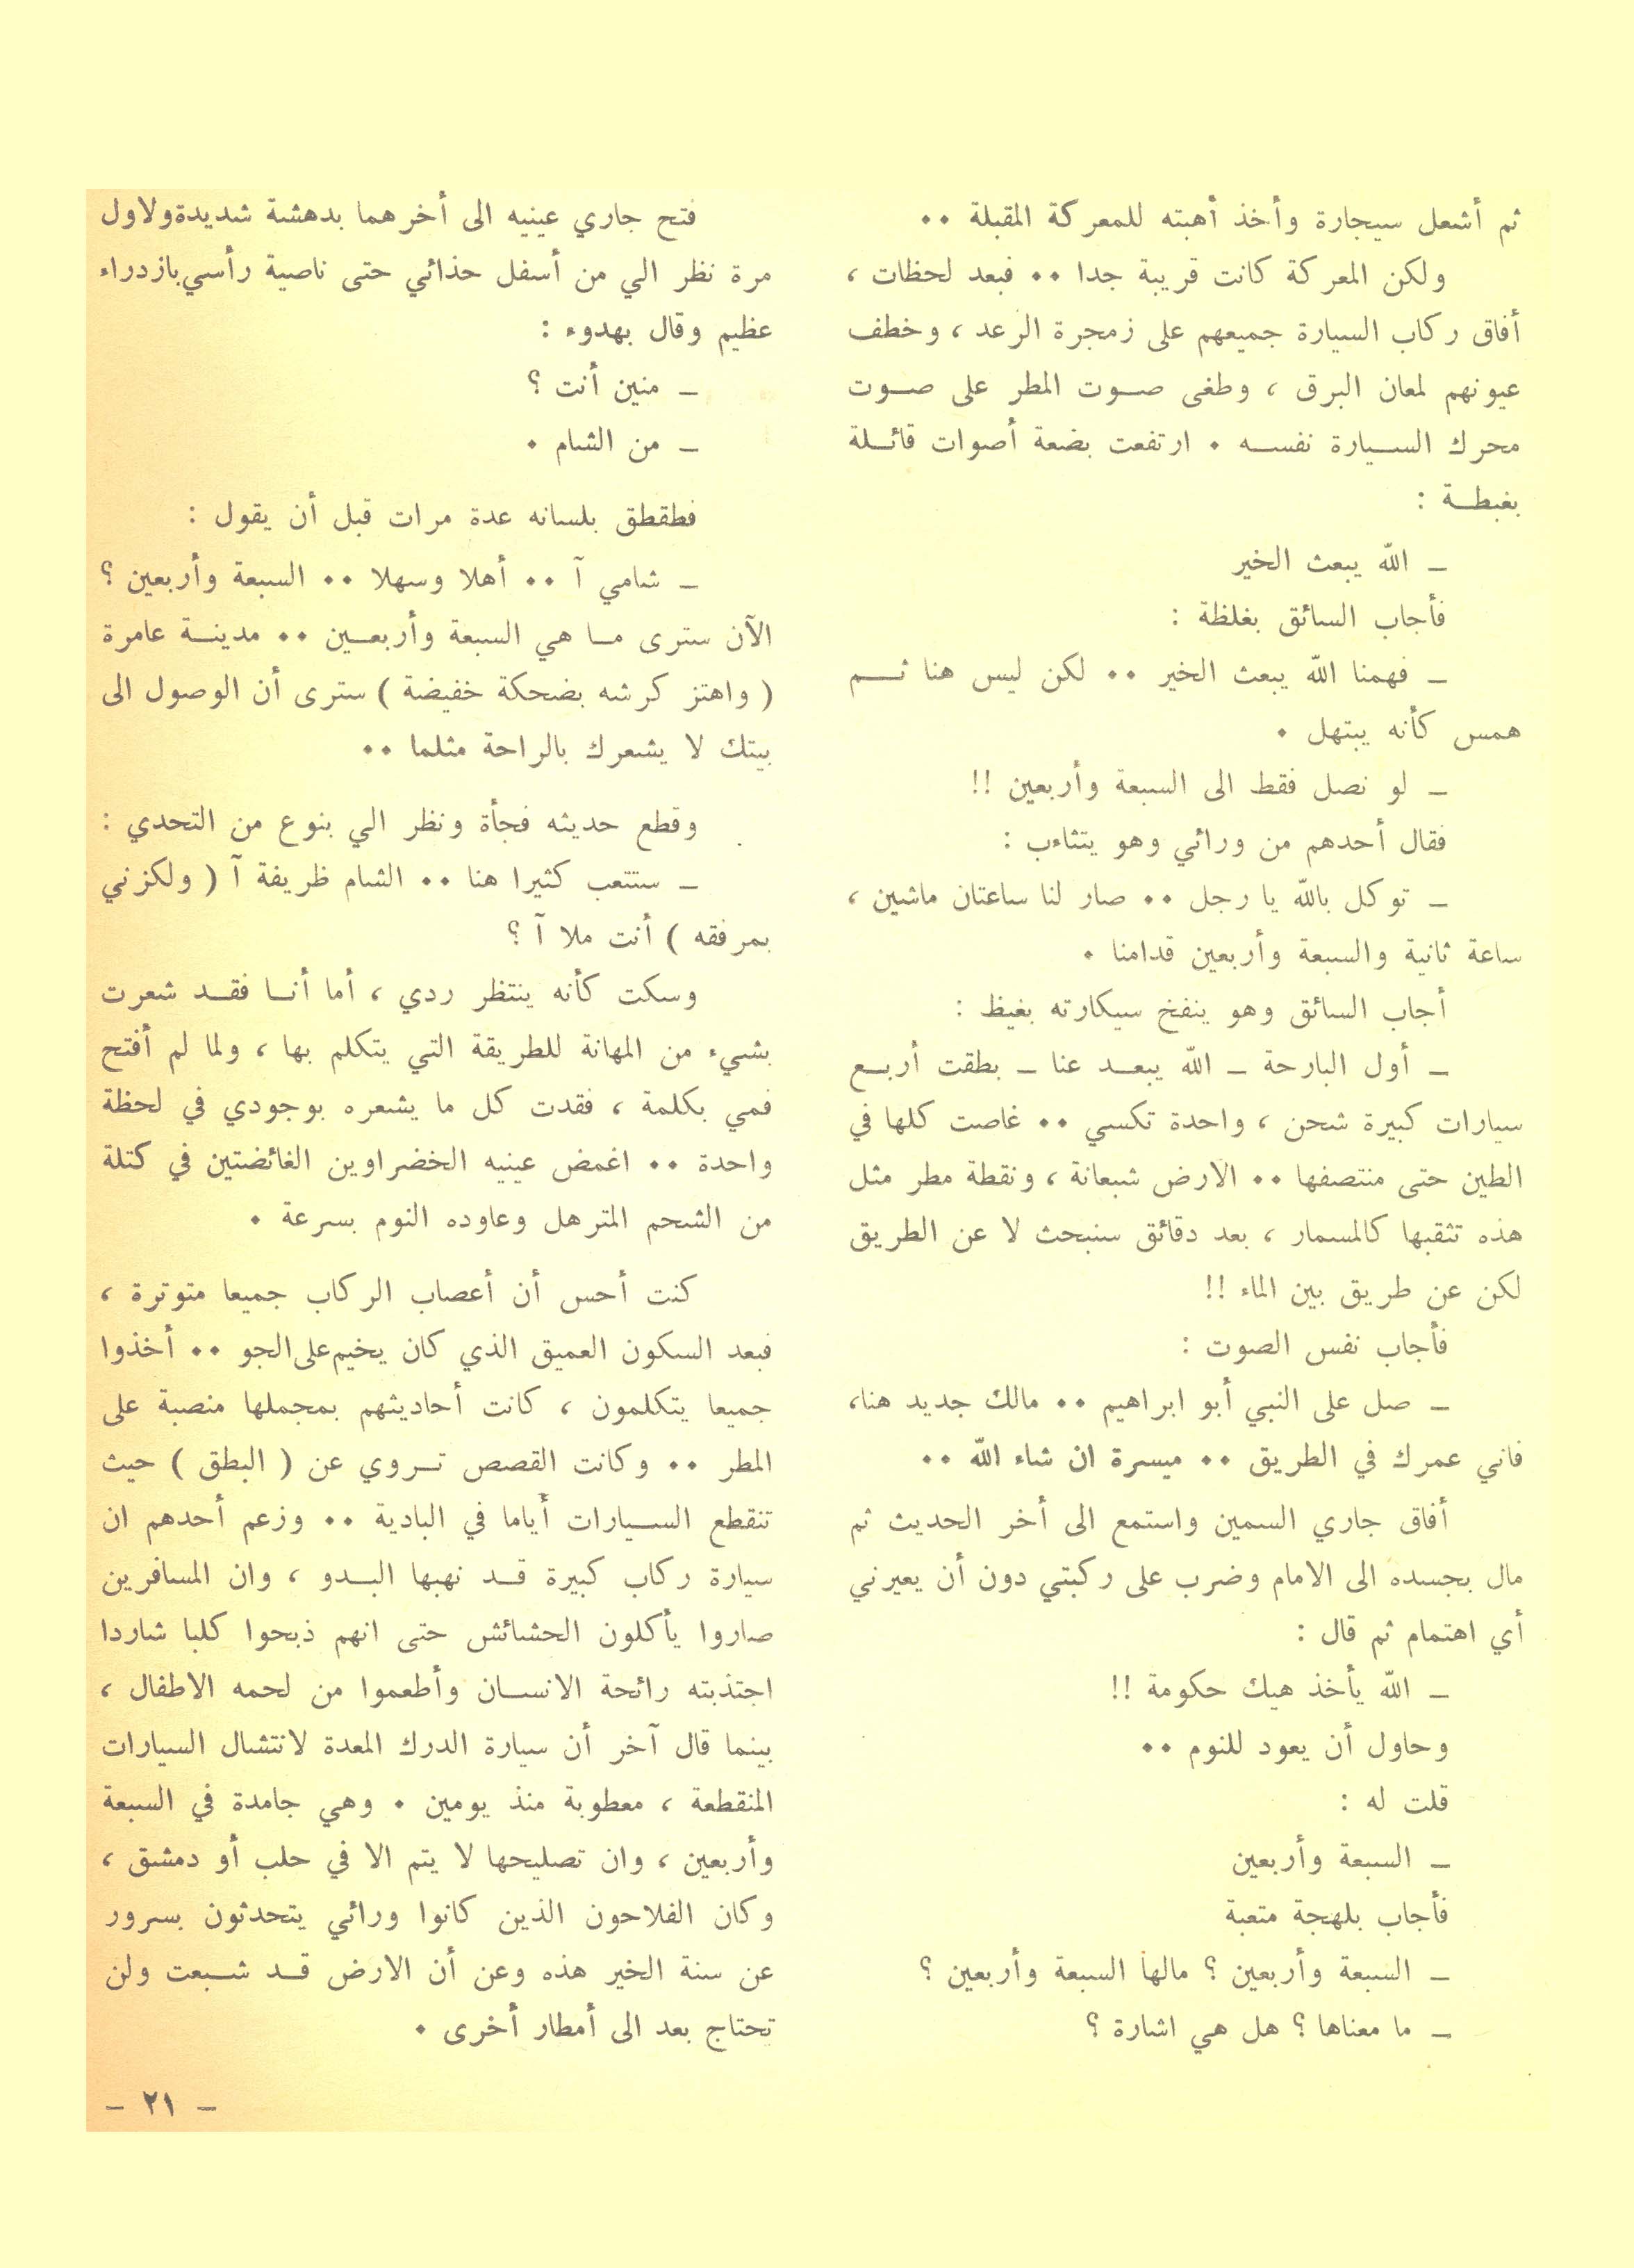 ثم أشعل سيجارة وأخذ أهبته للمعركة المقبلة ٠٠
ولكن المعركة كانت قريبة جدا ٠٠ فبعد لحظات ،
أفاق ركاب السيارة جميعهم على زمجرة الرعد ، وخطف
عيونهم لمعان البرق ، وطغى صوت المطر على صوت
محرك السيارة نفسه ٠ ارتفعت بضعة أصوات قائلة
بغبطة :
ـ الله يبعث الخير
فأجاب السائق بغلظة :
ـ فهمنا الله يبعث الخير ٠٠ لكن ليس هنا ثم
همس كأنه يبتهل ٠
ـ لو نصل فقط الى السبعة وأربعين !!
فقال أحدهم من ورائي وهو يتثاءب :
ـ توكل بالله يا رجل ٠٠ صار لنا ساعتان ماشين ،
ساعة ثانية والسبعة وأربعين قدامنا ٠
أجاب السائق وهو ينفخ سيكارته بغيظ :
ـ أول البارحة ـ الله يبعد عنا ـ بطقت أربع
سيارات كبيرة شحن ، واحدة تكسي ٠٠ غاصت كلها في
الطين حتى منتصفها ٠٠ الارض شبعانة ، ونقطة مطر مثل
هذه تثقبها كالمسمار ، بعد دقائق سنبحث لا عن الطريق
لكن عن طريق بين الماء !!
فأجاب نفس الصوت :
ـ صل على النبي أبو ابراهيم ٠٠ مالك جديد هنا،
فاني عمرك في الطريق ٠٠ ميسرة ان شاء الله ٠٠
أفاق جاري السمين واستمع الى أخر الحديث ثم
مال بجسده الى الامام وضرب على ركبتي دون أن يعيرني
أي اهتمام ثم قال :
ـ الله يأخذ هيك حكومة !!
وحاول أن يعود للنوم ٠٠
قلت له :
ـ السبعة وأربعين
فأجاب بلهجة متعبة
ـ السبعة وأربعين ؟ مالها السبعة وأربعين ؟
ـ ما معناها ؟ هل هي اشارة ؟
فتح جاري عينيه الى أخرهما بدهشة شديدة ولاول
مرة نظر الي من أسفل حذائي حتى ناصية رأسي بازدراء
عظيم وقال بهدوء :
ـ منين أنت ؟
ـ من الشام ٠
فطقطق بلسانه عدة مرات قبل أن يقول :
ـ شامي آ ٠٠ أهلا وسهلا ٠٠ السبعة وأربعين ؟
الآن سترى ما هي السبعة وأربعين ٠٠ مدينة عامرة
( واهتز كرشه بضحكة خفيضة ) سترى أن الوصول الى
بيتك لا يشعرك بالراحة مثلما ٠٠
وقطع حديثه فجأة ونظر الي بنوع من التحدي :
ـ ستتعب كثيرا هنا ٠٠ الشام ظريفة آ ( ولكزني
بمرفقه ) أنت ملا آ ؟
وسكت كأنه ينتظر ردي ، أما أنا فقد شعرت
بشيء من المهانة للطريقة التي يتكلم بها ، ولما لم أفتح
فمي بكلمة ، فقدت كل ما يشعره بوجودي في لحظة
واحدة ٠٠ اغمض عينيه الخضراوين الغائضتين في كتلة
من الشحم المترهل وعاوده النوم بسرعة ٠
كنت أحس أن أعصاب الركاب جميعا متوترة ،
فبعد السكون العميق الذي كان يخيم على الجو ٠٠ أخذوا
جميعا يتكلمون ، كانت أحاديثهم بمجملها منصبة على
المطر ٠٠ وكانت القصص تروي عن ( البطق ) حيث
تنقطع السيارات أياما في البادية ٠٠ وزعم أحدهم ان
سيارة ركاب كبيرة قد نهبها البدو ، وان المسافرين
صاروا يأكلون الحشائش حتى انهم ذبحوا كلبا شاردا
اجتذبته رائحة الانسان وأطعموا من لحمه الاطفال ،
بينما قال آخر أن سيارة الدرك المعدة لانتشال السيارات
المنقطعة ، معطوبة منذ يومين ٠ وهي جامدة في السبعة
وأربعين ، وان تصليحها لا يتم الا في حلب أو دمشق ،
وكان الفلاحون الذين كانوا ورائي يتحدثون بسرور
عن سنة الخير هذه وعن أن الارض قد شبعت ولن
تحتاج بعد الى أمطار أخرى ٠
ـ ٢١ ـ